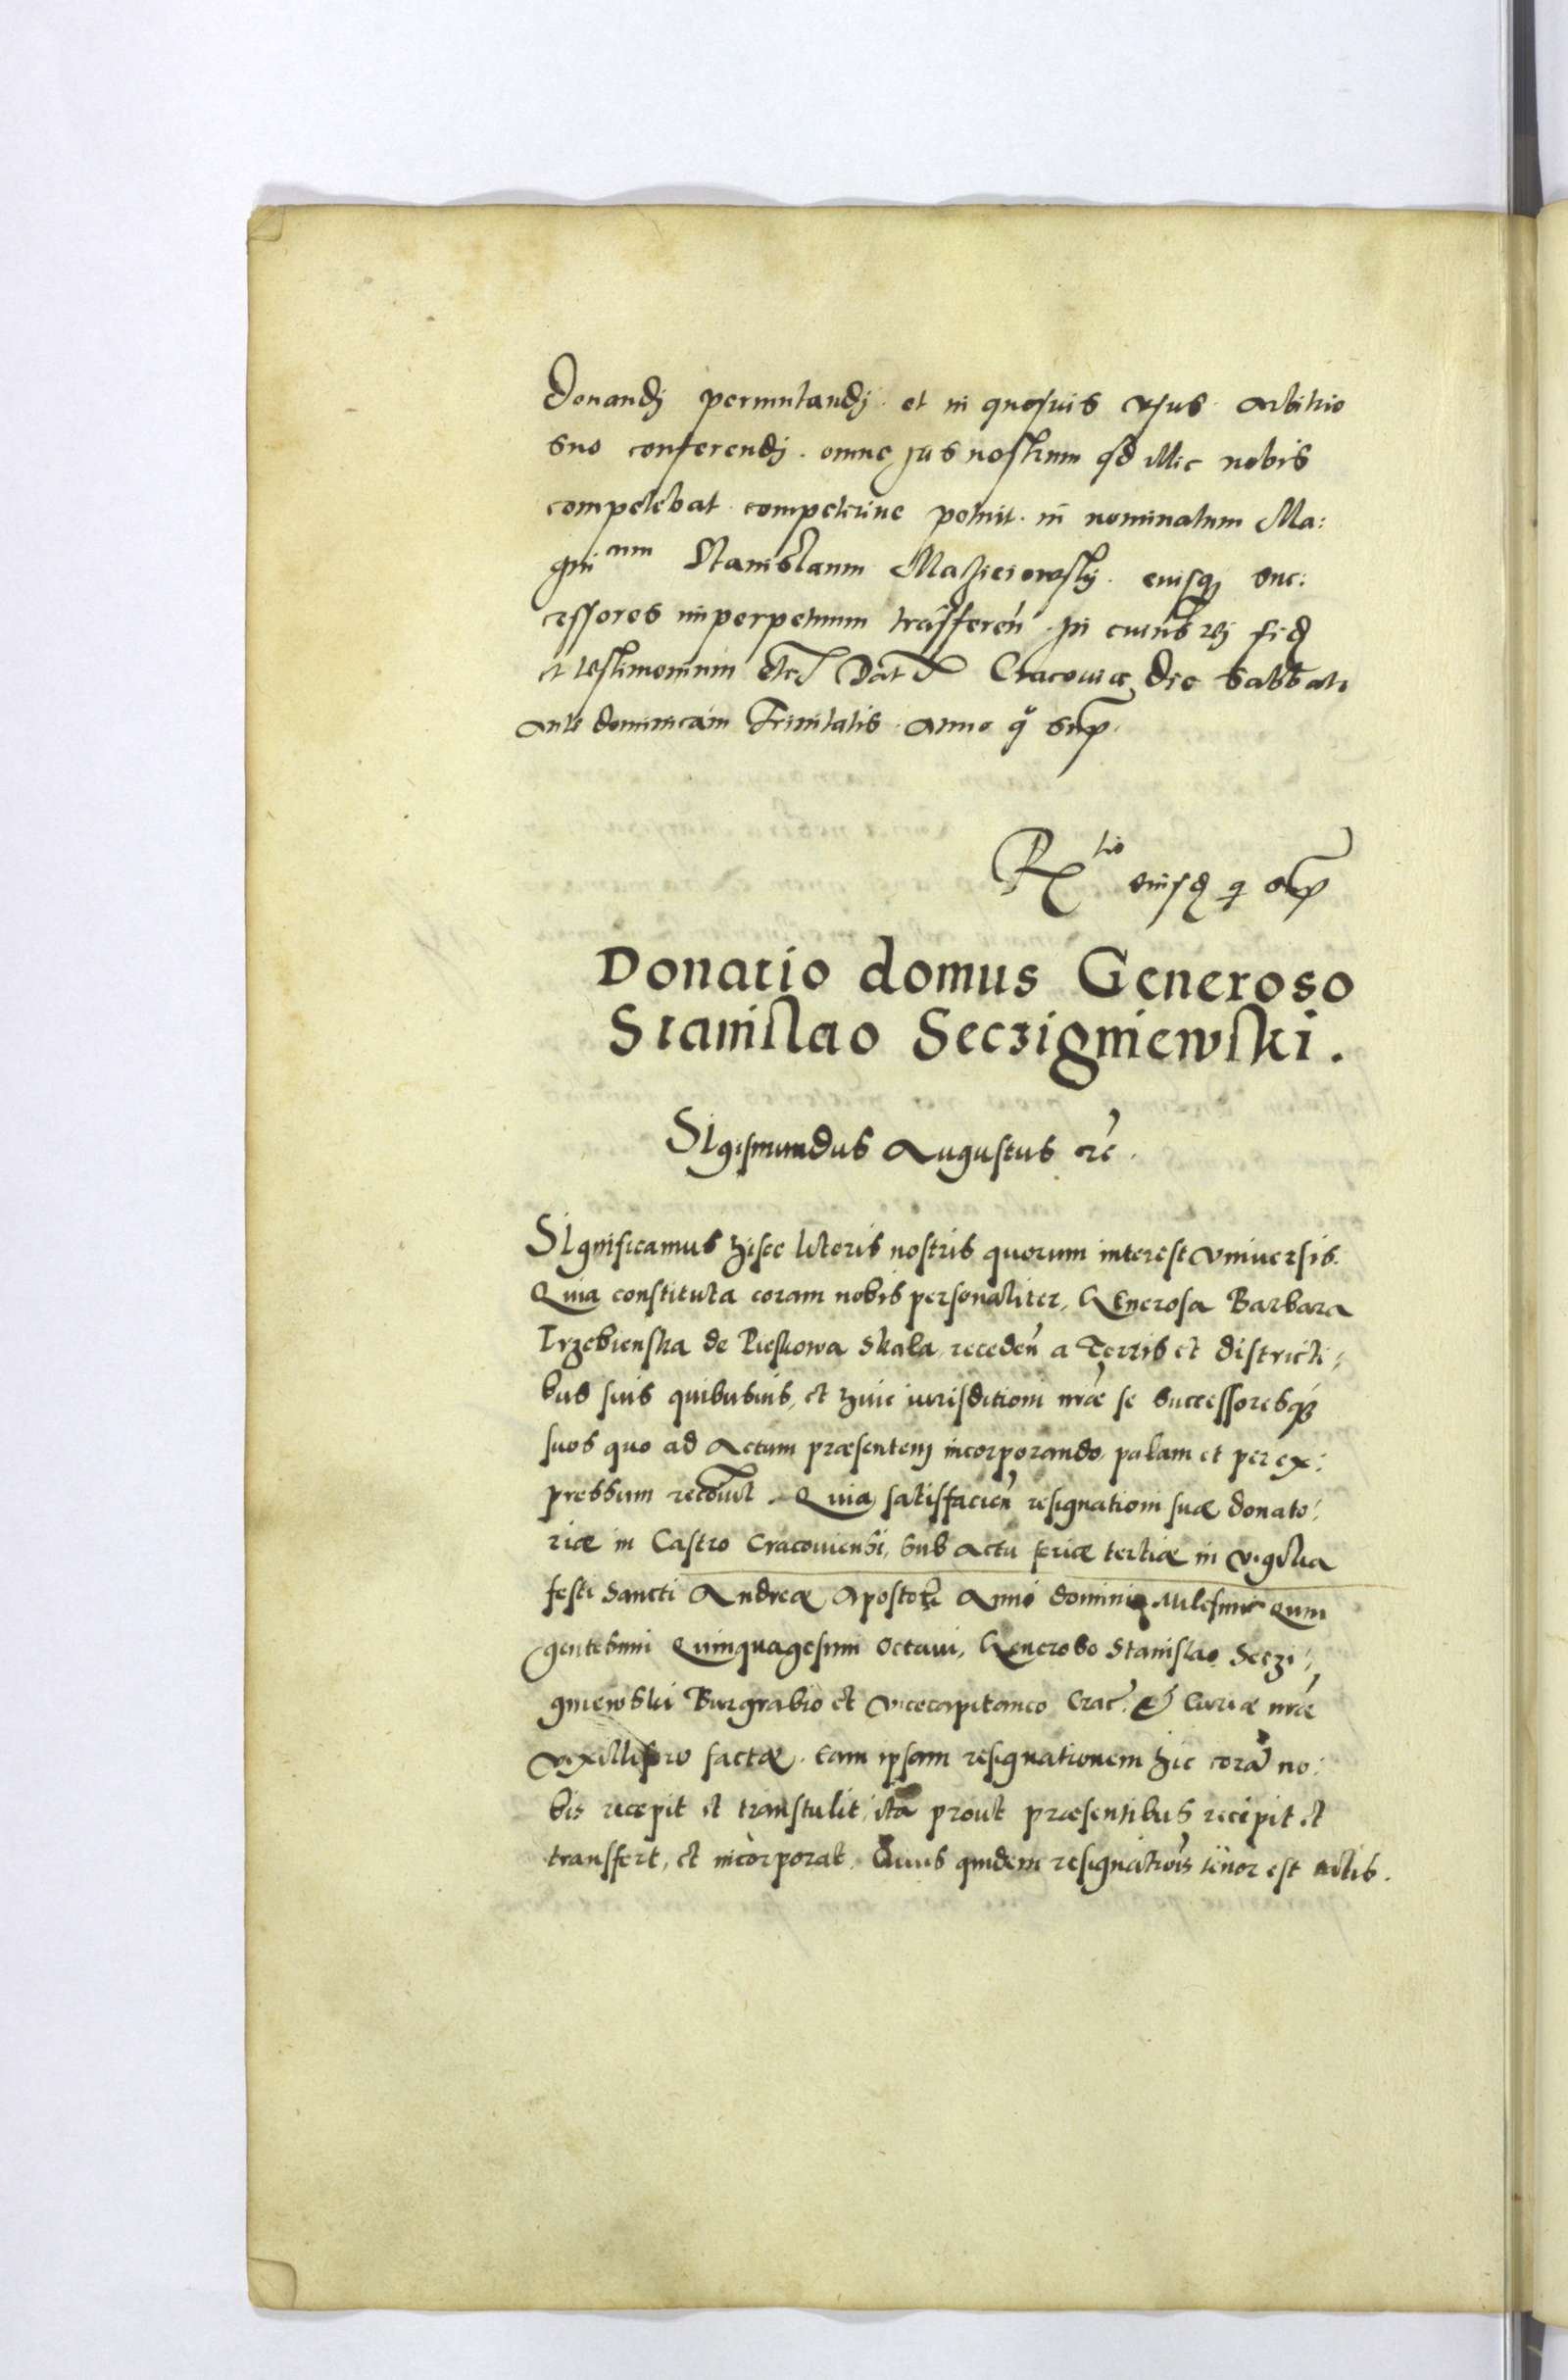 Donandj permutandj et in quosuis vsus arbitrio
suo conferendj. omne jus nostrum qd illic nobis
competebat competeriue potuit. in nominatum Ma:
gni cum Stanislaum Maczieiowskij. eiusq3 suc:
cessores inperpetuum trãsferen̄. In cuius rej fid
et testimonium etc Dat Cracouiæ die Sabbati
ante dominicam Trinitatis. Anno q° sup.
R tio eiusd q sup
Donatio domus Generoso
Stanislao Seczigniewski.
SIgismundus Augustus etc.
SIgnificamus hisce literis nostris quorum interest vniuersis.
Quia constituta coram nobis personaliter, GEnerosa Barbara
Trzebienska de Pieskowa Skala, receden̄ a Terris et districti:
bus suis quibusuis, et huic iurisditioni nræ se successoresq3
suos quo ad Actum præsentem incorporando, palam et per ex:
pressum recouit. Quia, satisfacien̄ resignationi suæ donato:
riæ in Castro Cracouiensi, sub actu feriæ tertiæ in vigilia
festi Sancti Andreæ Apostoli Anni domini Milesimi Quin
gentesimi Quinquagesimi octaui, Generoso Stanislao Seczi:
gniewski Burgrabio et vicecapitaneo Crac. et Curiæ nræ
vexillifero factæ. eam ipsam resignationem hic corã no:
bis recepit et transtulit, ita prout præsentibus recipit et
transfert, et incorporat. Cuius quidem resignationis tenor est talis.